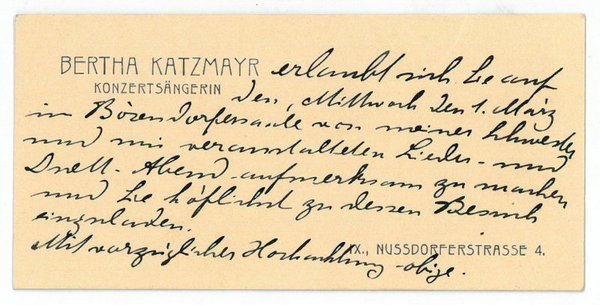 BERTHA KATZMAYR erlaubt sich Sie auf
KONZERTSÄNGERIN
den, Mittwoch den 1. März
im Bösendorfersaale von meiner Schwester
und mir veranstalteten Lieder- und
Duett-Abend aufmerksam zu machen
und Sie höflichst zu dessen Besuch
einzuladen.
Mit vorzüglicher Hochachtung obige.
IX., NUSSDORFERSTRASSE 4.